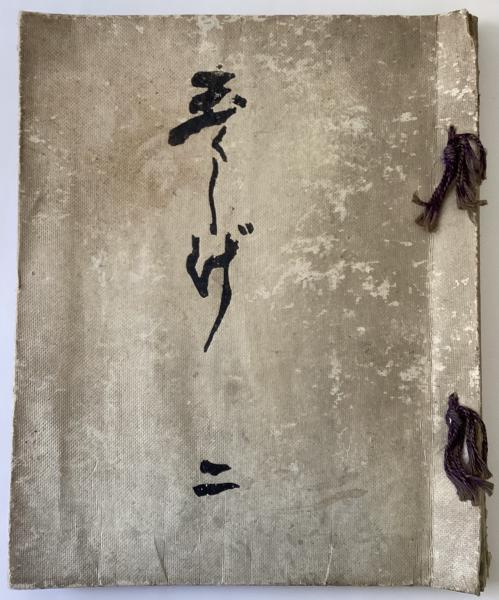 玉くしげ 二